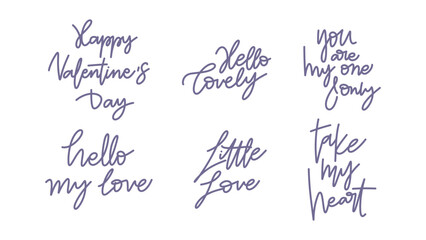 Happy
Valentine's
Day
Hello
Lovely
you
are
my one
& only
hello
my love
Little
Love
take
my
heart